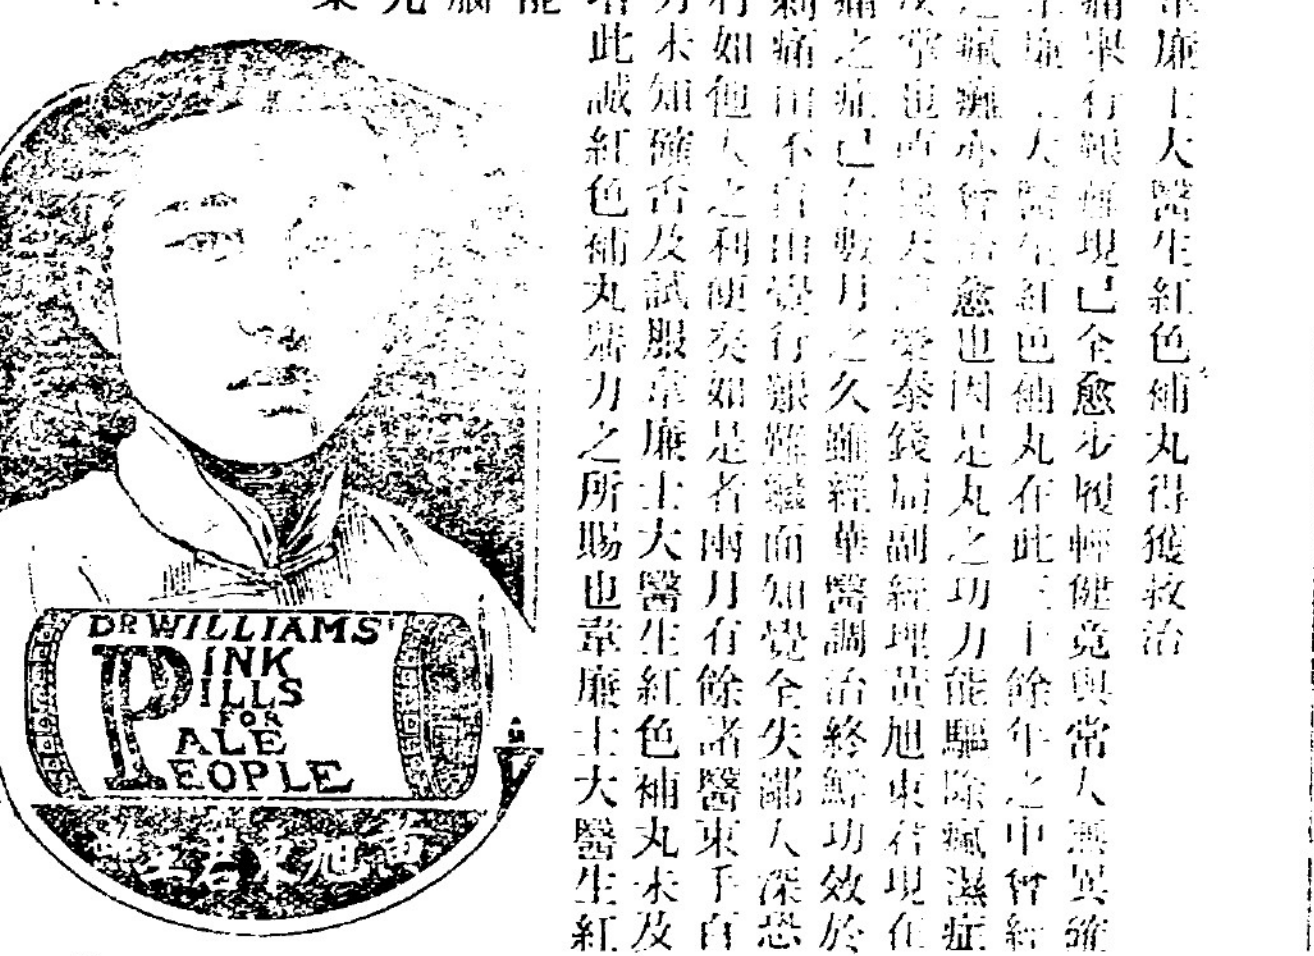 廉士大醫生紅色補丸得獲救治
痛果行艱難現已全愈步履輕健竟與常人無異確
廉士大醫生紅色補丸在此三十餘年之中曾經
之瘋癱亦曾治愈也因是丸之功力能驅除瘋濕症
掌也直隸天津榮泰錢局副經理黃旭東君現在
痛之症已有數月之久雖經華醫調治終鮮功效於
刺痛由不自由覺行艱難繼而知覺全失鄙人深恐
行如他人之利便矣如是者兩月有餘諸醫束手百
方未知確否及試服韋廉士大醫生紅色補丸未及
此誠紅色補丸之力之所賜也韋廉士大醫生紅
DR WILLIAMS'
PINK
PILLS
FOR
PALE
PEOPLE
黃旭東君玉照